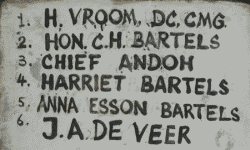 1. H. VROOM, DC. CMG
2. HON. C.H. BARTELS
3. CHIEF ANDOH
4. HARRIET BARTELS
5. ANNA ESSON BARTELS
6. J.A. DE VEER